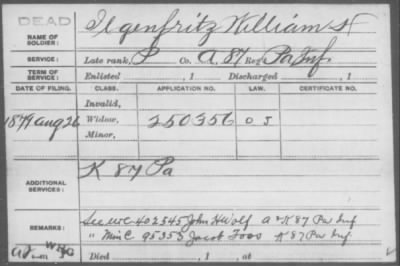 DEAD
NAME OF SOLDIER: Ilgenfritz William H
SERVICE: Late rank, P Co. A, 87 Reg't Pa Inf.
TERM OF SERVICE: Enlisted , 1 Discharged , 1
DATE OF FILING. CLASS. APPLICATION NO. LAW. CERTIFICATE NO.
Invalid,
1879 Aug 26 Widow, 250356 O J
Minor,
ADDITIONAL SERVICES: K 87 Pa
REMARKS: See WC 402345 John H Wolf A & K 87 Pa Inf
" Min C 95353 Jacob Foos K 87 Pa Inf
Died , 1 , at